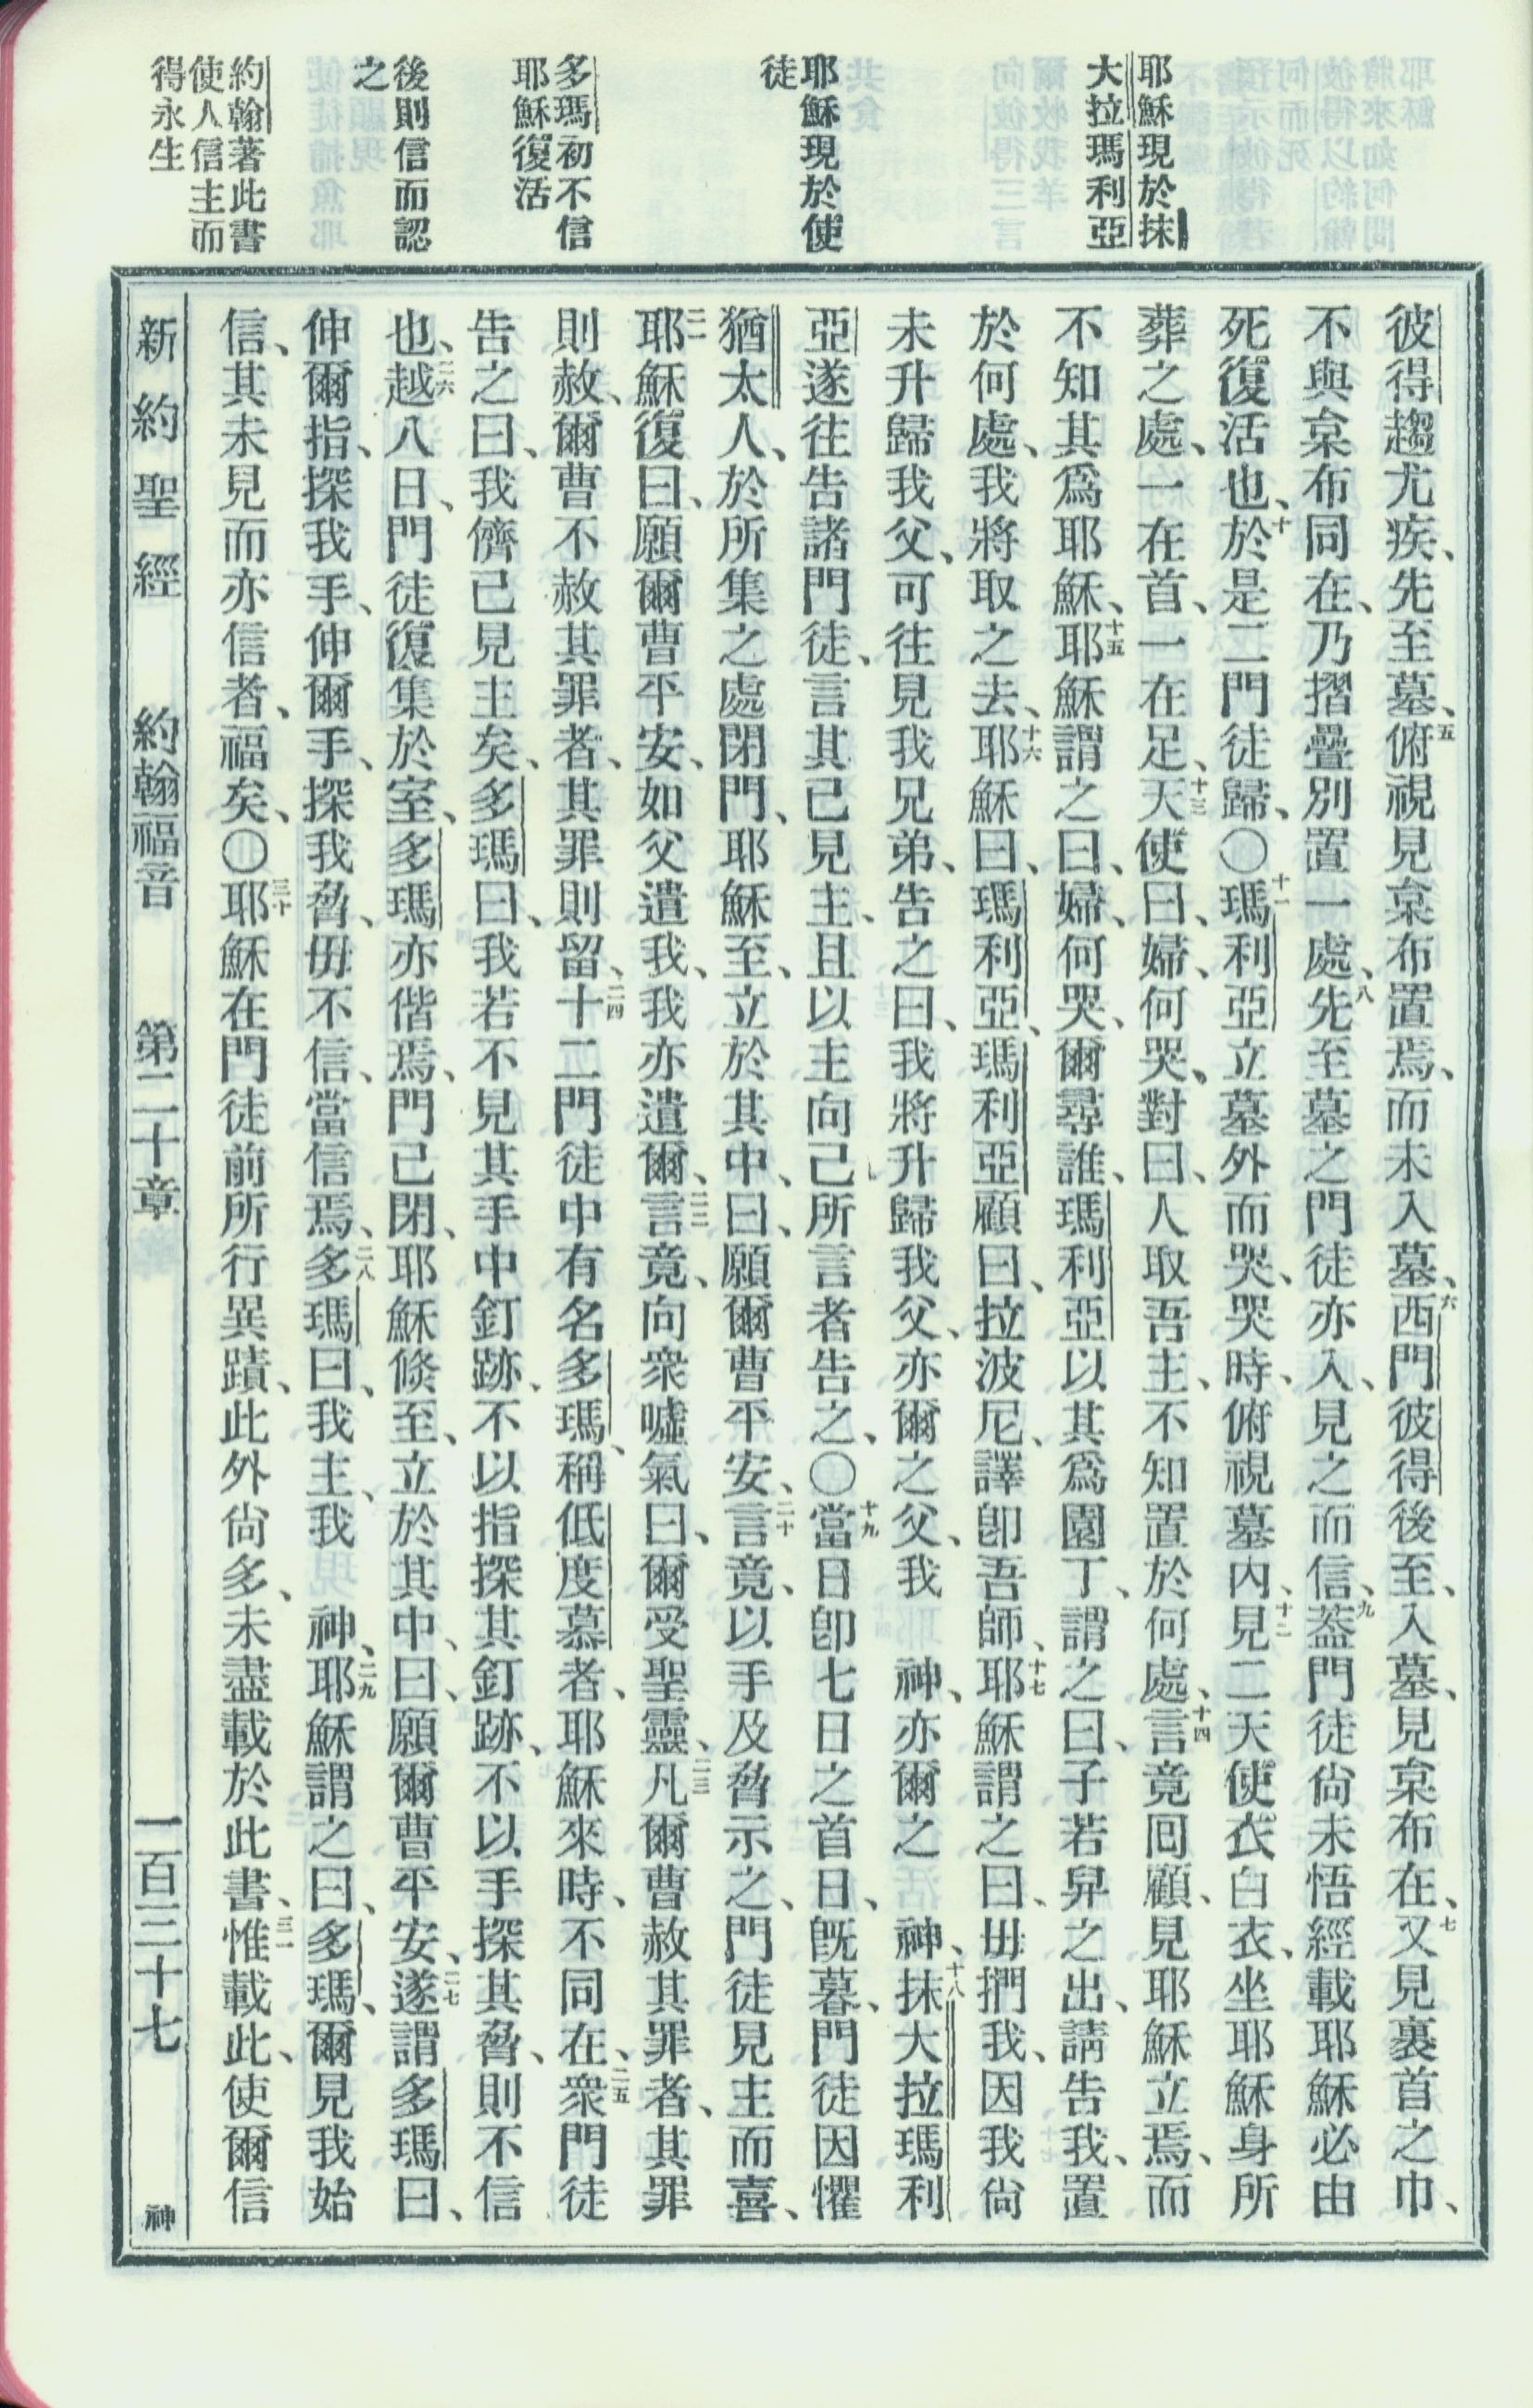 耶穌現於抹
大拉瑪利亞
耶穌現於使
徒
多瑪初不信
耶穌復活
後則信而認
之
約翰著此書
使人信主而
得永生
彼得趨尤疾、先至墓、五俯視見枲布置焉、而未入墓、六西門彼得後至、入墓、見枲布在、七又見裹首之巾、
不與枲布同在、乃摺疊別置一處、八先至墓之門徒亦入、見之而信、九葢門徒尙未悟經載耶穌必由
死復活也、十於是二門徒歸、〇十一瑪利亞立墓外而哭、哭時、俯視墓內、十二見二天使衣白衣、坐耶穌身所
葬之處、一在首、一在足、十三天使曰、婦、何哭、對曰、人取吾主、不知置於何處、十四言竟回顧、見耶穌立焉、而
不知其爲耶穌、十五耶穌謂之曰、婦、何哭、爾尋誰、瑪利亞以其爲園丁、謂之曰、子若舁之出、請告我、置
於何處、我將取之去、十六耶穌曰、瑪利亞、瑪利亞顧曰、拉波尼、譯卽吾師、十七耶穌謂之曰、毋捫我、因我尙
未升歸我父、可往見我兄弟、告之曰、我將升歸我父、亦爾之父、我　神、亦爾之　神、十八抹大拉瑪利
亞遂往告諸門徒、言其已見主、且以主向己所言者告之、〇十九當日卽七日之首日、旣暮、門徒因懼
猶太人、於所集之處閉門、耶穌至、立於其中、曰、願爾曹平安、二十言竟、以手及脅示之、門徒見主而喜、
二一耶穌復曰、願爾曹平安、如父遣我、我亦遣爾、二二言竟、向衆噓氣曰、爾受聖靈、二三凡爾曹赦其罪者、其罪
則赦、爾曹不赦其罪者、其罪則留、二四十二門徒中有名多瑪、稱低度慕者、耶穌來時、不同在、二五衆門徒
告之曰、我儕已見主矣、多瑪曰、我若不見其手中釘跡、不以指探其釘跡、不以手探其脅、則不信
也、二六越八日、門徒復集於室、多瑪亦偕焉、門已閉、耶穌倏至、立於其中、曰、願爾曹平安、二七遂謂多瑪曰、
伸爾指、探我手、伸爾手、探我脅、毋不信、當信焉、二八多瑪曰、我主、我　神、二九耶穌謂之曰、多瑪、爾見我始
信、其未見而亦信者、福矣、〇三十耶穌在門徒前所行異蹟、此外尙多、未盡載於此書、三一惟載此、使爾信
新約聖經　約翰福音　第二十章　一百三十七　神